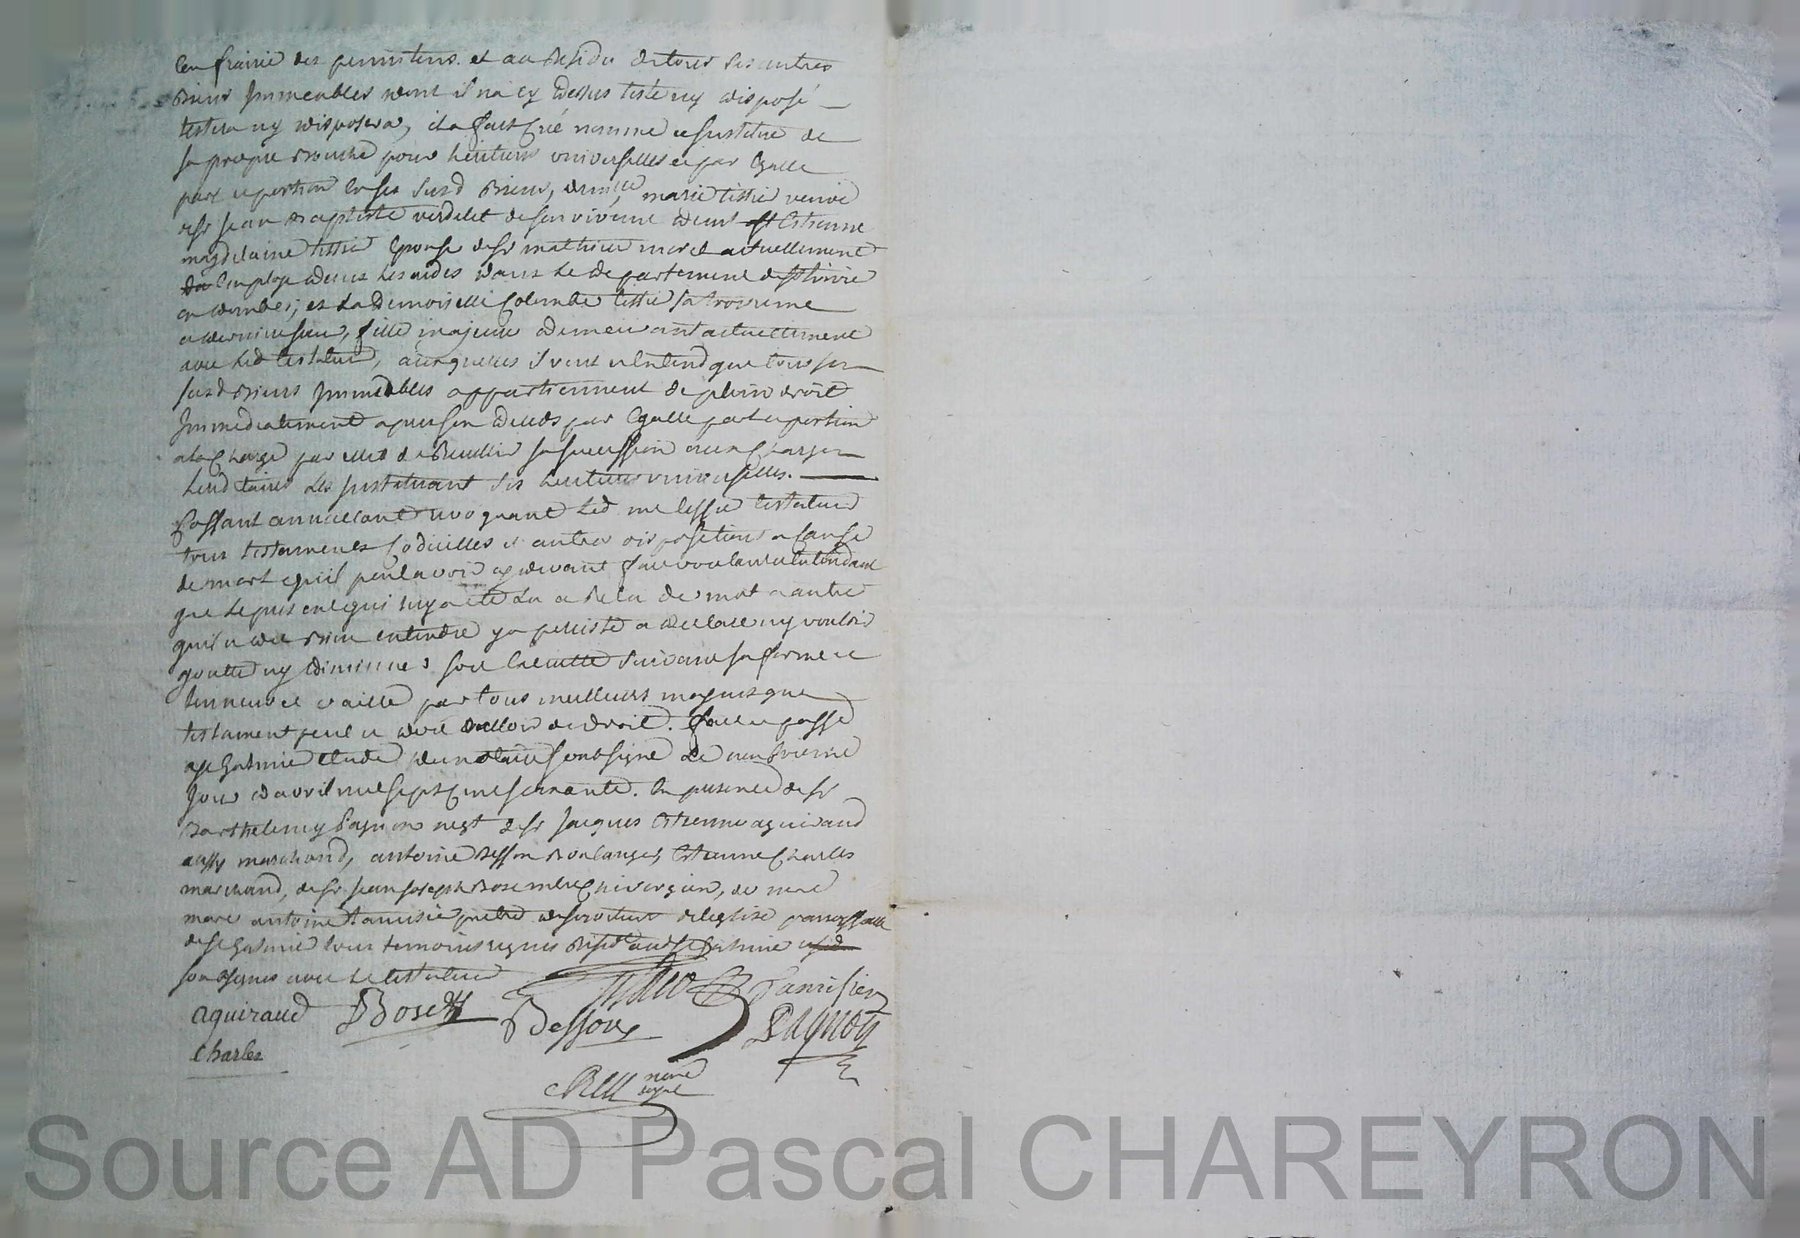 confrairie des penitens. et au Residu de tous ses autres
Biens Immeubles dont il na cy dessus testé ny disposé
testera ny disposera, il a fait Créé nommé et Institué de
sa propre Bouche pour heritiers universelles et par Egalle
part et portion En ses susd Biens, marie tissié veuve
de sr jean Baptiste verdelet de son vivant St Estienne
magdelaine tissié Epouse de sr mathieu morel actuellement
Employé dans les aides dans le departement de
en dombes; et La Demoiselle Colombe tissié sa troisieme
et derniere fille majeure demeurant actuellement
avec led testateur, auxquelles il veut et Entend que tous ses
susd Biens Immeubles appartiennent de plein droit
Immediatement apres son deceds par Egalle part et portion
a la Charge par elles de Recueillir sa succession aux Charges
hereditaires Les Instituant ses heritieres universelles.
Cassant annullant revoquant led testateur
tous testaments Codicilles et autres dispositions a Cause
de mort qu'il peut avoir cy devant fait voulant et Entendant
que le present qui luy a eté Lu et Relu de mot a autre
qu'il a dit Bien entendre y a persisté a declaré ny vouloir
ny diminuer soit Executté suivant sa forme et
teneur et vaille par tous meilleurs moyens que
testament peut et doit valloir de droit. fait et passé
a st Galmier Etude du notaire soubsigné Le neufvieme
jour d'avril mil sept Cens soixante. En presence de sr
Barthelemy Pagnon negt de sr jacques Estienne aguiraud
aussy marchand, antoine Besson Boulanger, Estienne Charles
marchand, de sr jean joseph Chirurgien, de mre
marc antoine tamisié prêtre desserviteur de l'eglise parroissialle
de st Galmier tous temoins requis audt st Galmier
soubsignés avec Le testateur
aguiraud Besson tamisier
Pagnon
Charles
Source AD Pascal CHAREYRON